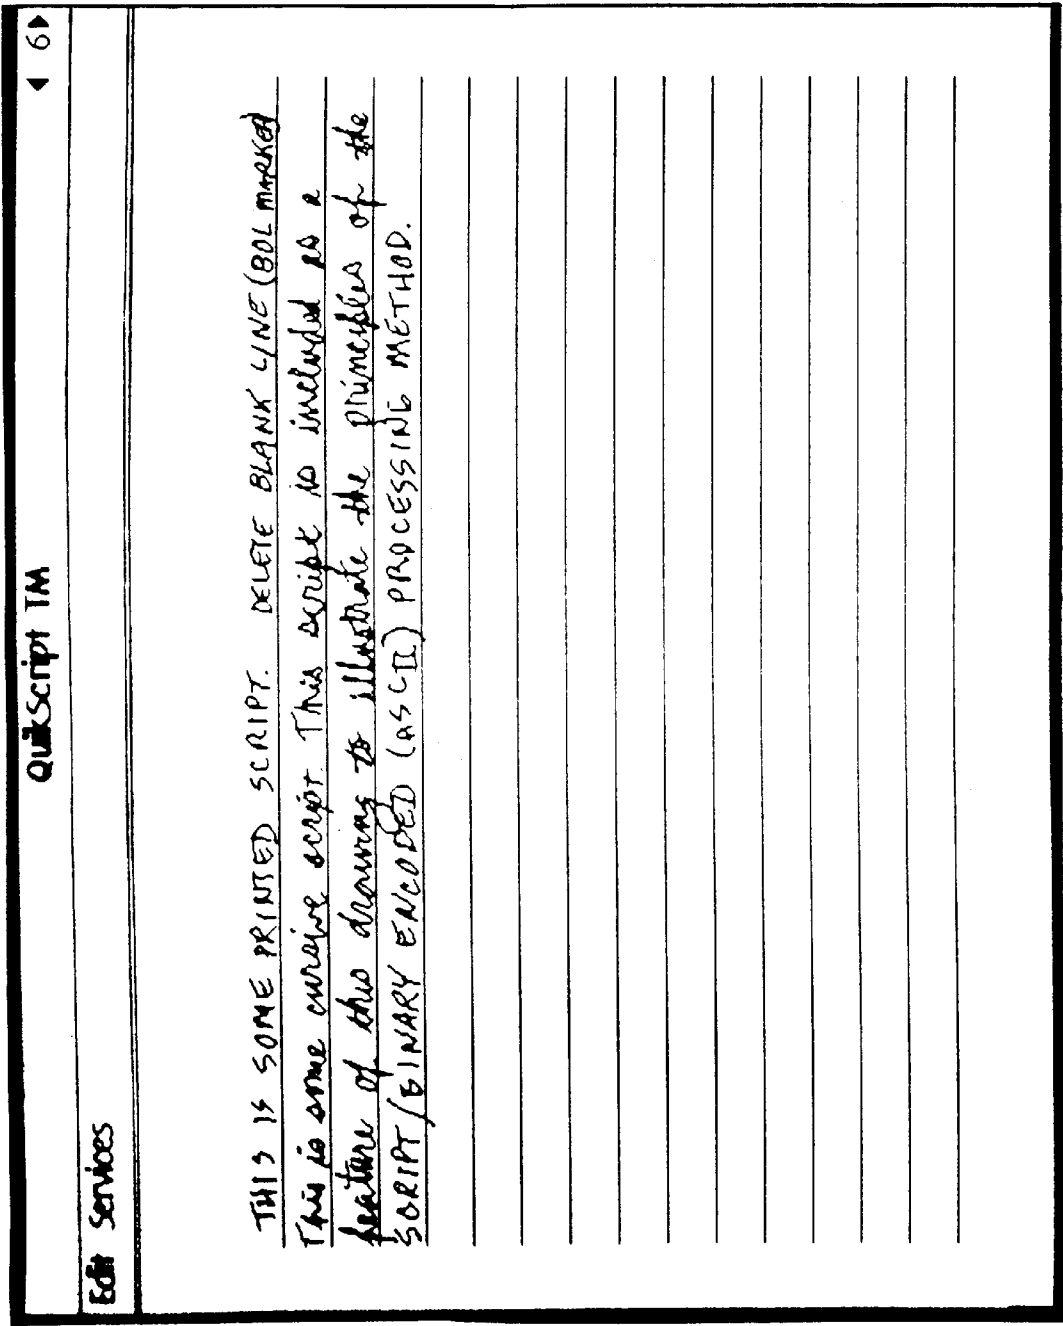 QuikScript TM
◀ 6 ▶
Edit Services
THIS IS SOME PRINTED SCRIPT. DELETE BLANK LINE (BOL MARKER)
This is some cursive script. This script is included as a
feature of this drawing to illustrate the principles of the
SCRIPT/BINARY ENCODED (ASCII) PROCESSING METHOD.